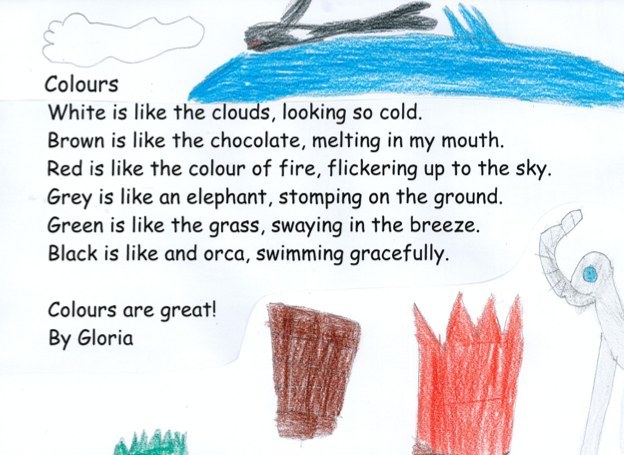 Colours
White is like the clouds, looking so cold.
Brown is like the chocolate, melting in my mouth.
Red is like the colour of fire, flickering up to the sky.
Grey is like an elephant, stomping on the ground.
Green is like the grass, swaying in the breeze.
Black is like and orca, swimming gracefully.
Colours are great!
By Gloria